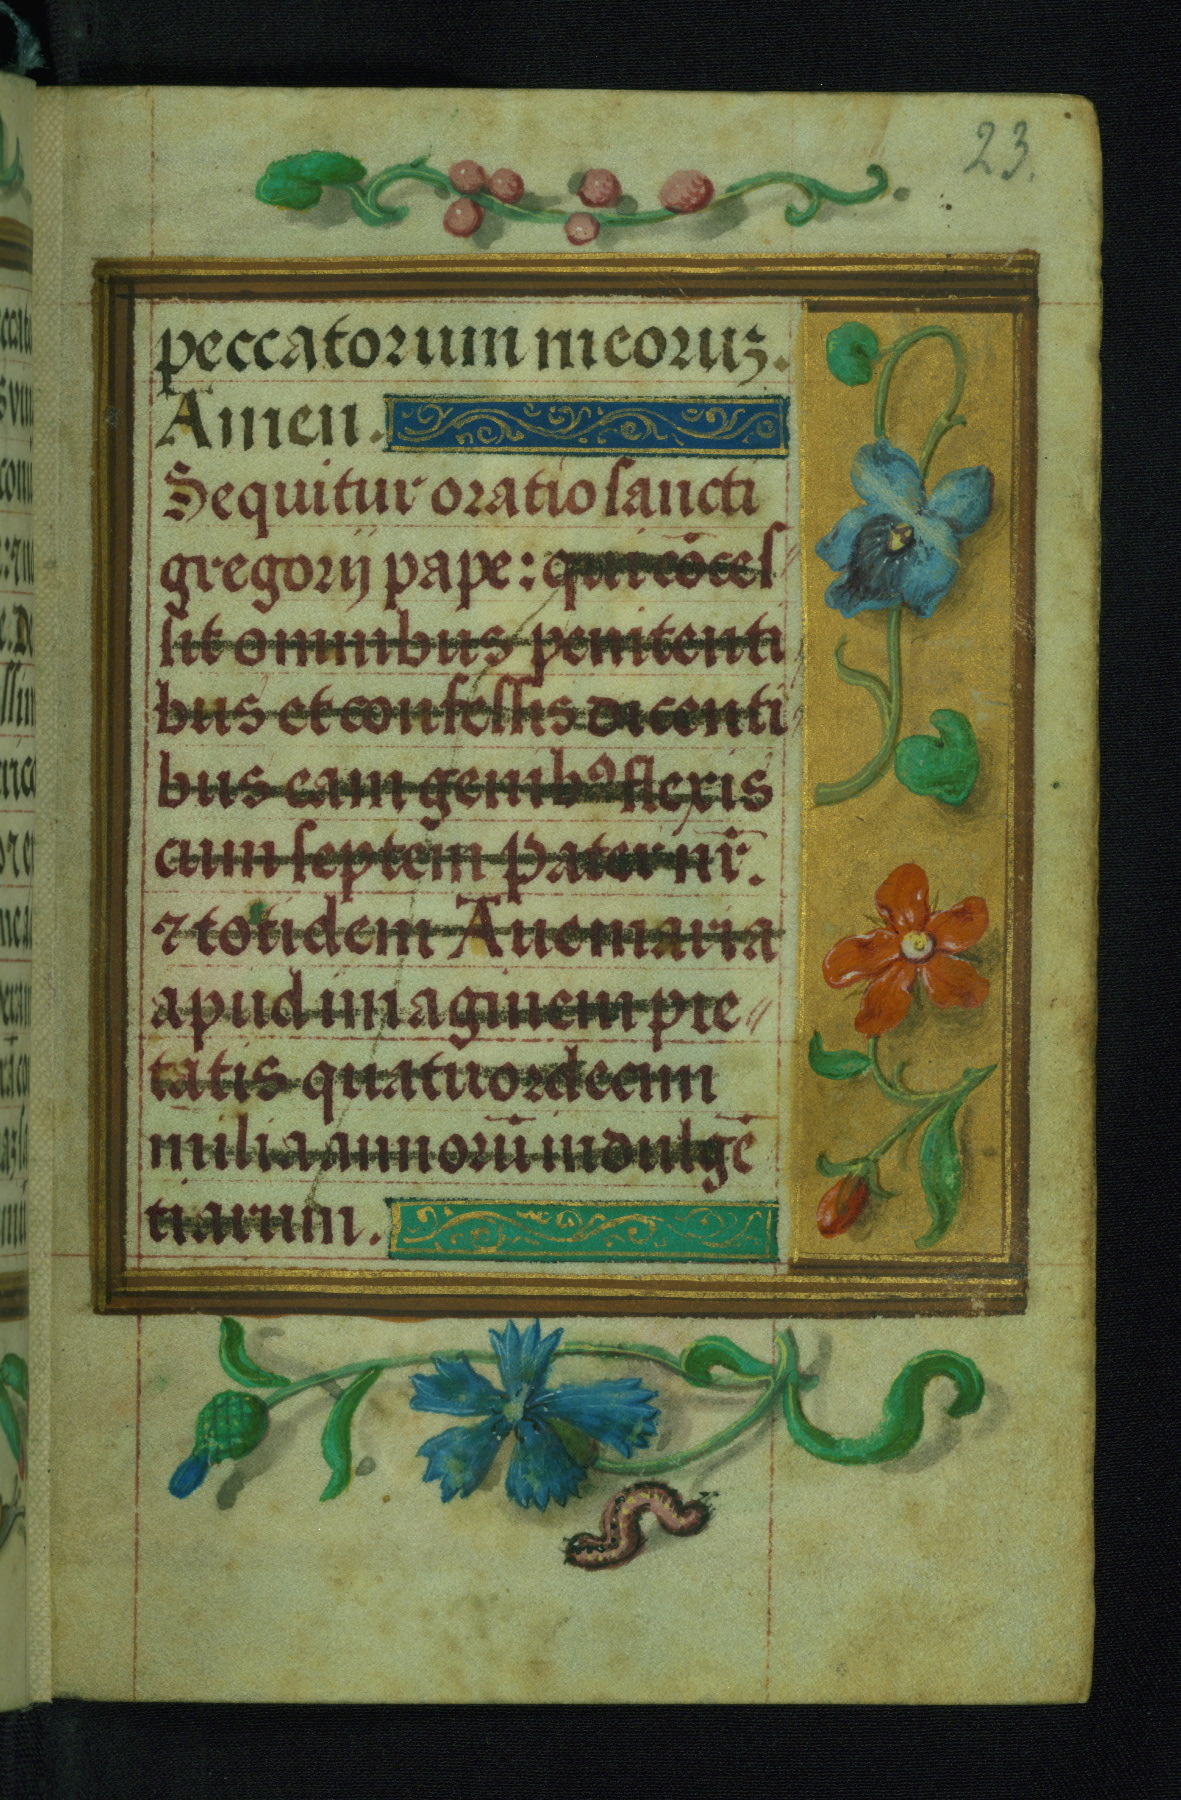 23.
peccatorum meoruꝫ.
Amen.
Sequitur oratio sancti
gregorij pape: qui cōces
sit omnibus penitenti
bus et confessis dicenti
bus eam genibꝰ flexis
cum septem Pater nr̄.
⁊ totidem Aue maria
apud imaginem pie〃
tatis quatuordecim
milia annorū indulgē
tiarum.